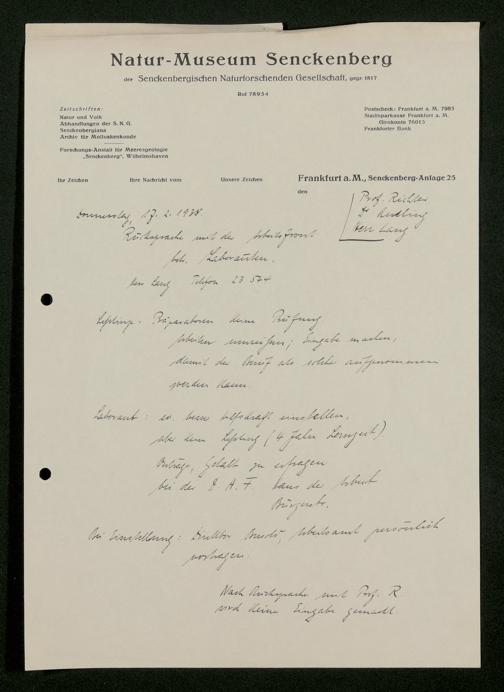 Natur-Museum Senckenberg
der Senckenbergischen Naturforschenden Gesellschaft, gegr. 1817
Ruf 78954
Zeitschriften:
Natur und Volk
Abhandlungen der S. N. G.
Senckenbergiana
Archiv für Molluskenkunde
Forschungs-Anstalt für Meeresgeologie
„Senckenberg“, Wilhelmshaven
Postscheck: Frankfurt a. M. 7985
Stadtsparkasse Frankfurt a. M.
Girokonto 76015
Frankfurter Bank
Ihr Zeichen Ihre Nachricht vom Unsere Zeichen Frankfurt a. M., Senckenberg-Anlage 25
den
Prof. Richter
Dr
Herr Lang
Donnerstag, 17. 2. 1938.
Rücksprache mit der Arbeitsfront
betr. Laboranten.
Herr Lang Telefon 23 544
Lehrling: Präparatoren keine Prüfung
Arbeiten einreichen; Eingabe machen,
damit der Beruf als solcher aufgenommen
werden kann.
Laborant: ev. beim einstellen,
aber dann Lehrling (4 Jahre Lernzeit).
Beiträge, Gehalt zu erfragen
bei der D. A. F. Haus der Arbeit
Bürgerstr.
Bei Einstellung: Direktor Arbeitsamt persönlich
vortragen.
Nach Rücksprache mit Prof. R
wird keine Eingabe gemacht.